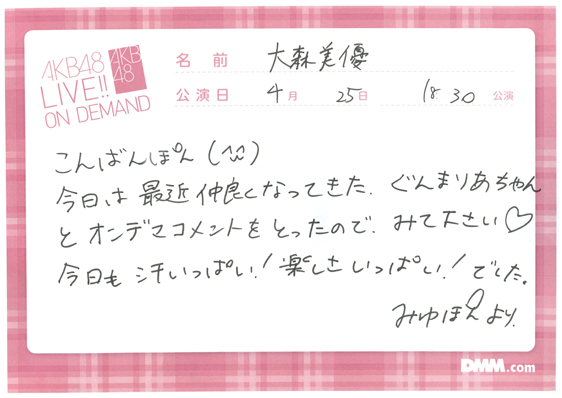 AKB48
LIVE!!
ON DEMAND
AKB
48
名前 大森美優
公演日 4月 25日 18:30 公演
こんばんぽん(^^)
今日は最近仲良くなってきた、ぐんまりあちゃん
とオンデマコメントをとったので、みて下さい♡
今日も汗いっぱい!楽しさいっぱい!でした。
みゆぽんより。
DMM.com